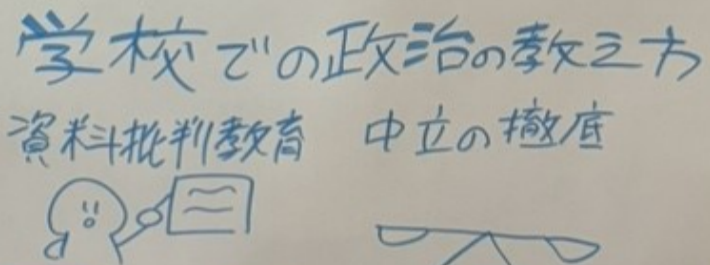 学校での政治の教え方
資料批判教育 中立の徹底